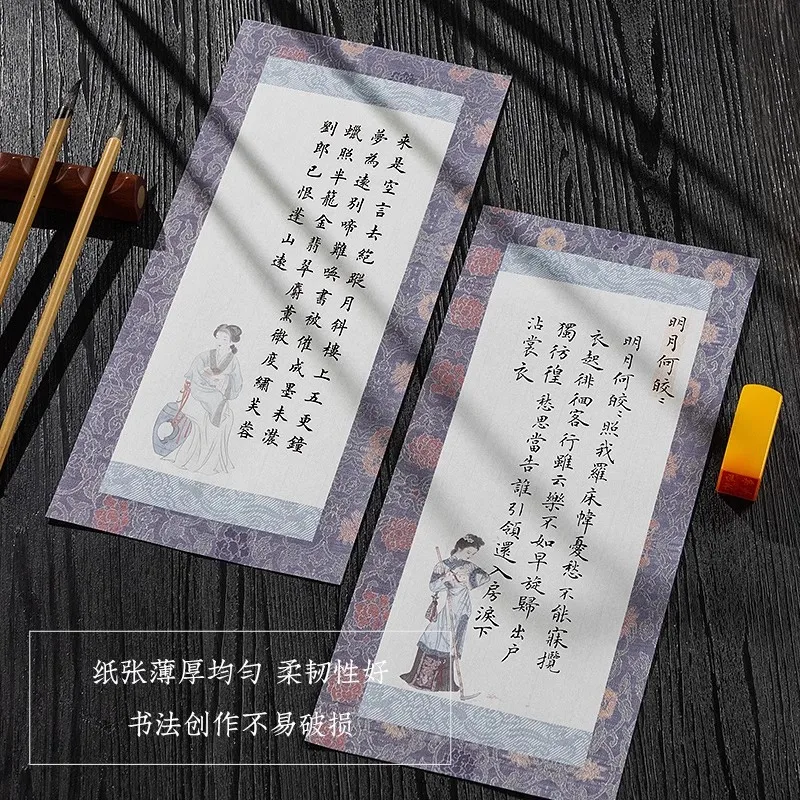 来是空言去絕蹤月斜樓上五更鐘
夢為遠別啼難喚書被催成墨未濃
蠟照半龍金翡翠麝薰微度繡芙蓉
劉郎已恨蓬山遠
明月何皎〻
明月何皎〻照我羅床幃憂愁不能寐攬
衣起徘徊客行雖云樂不如早旋歸出户
獨彷徨愁思當告誰引領還入房淚下
沾裳衣
纸张薄厚均匀 柔韧性好
书法创作不易破损